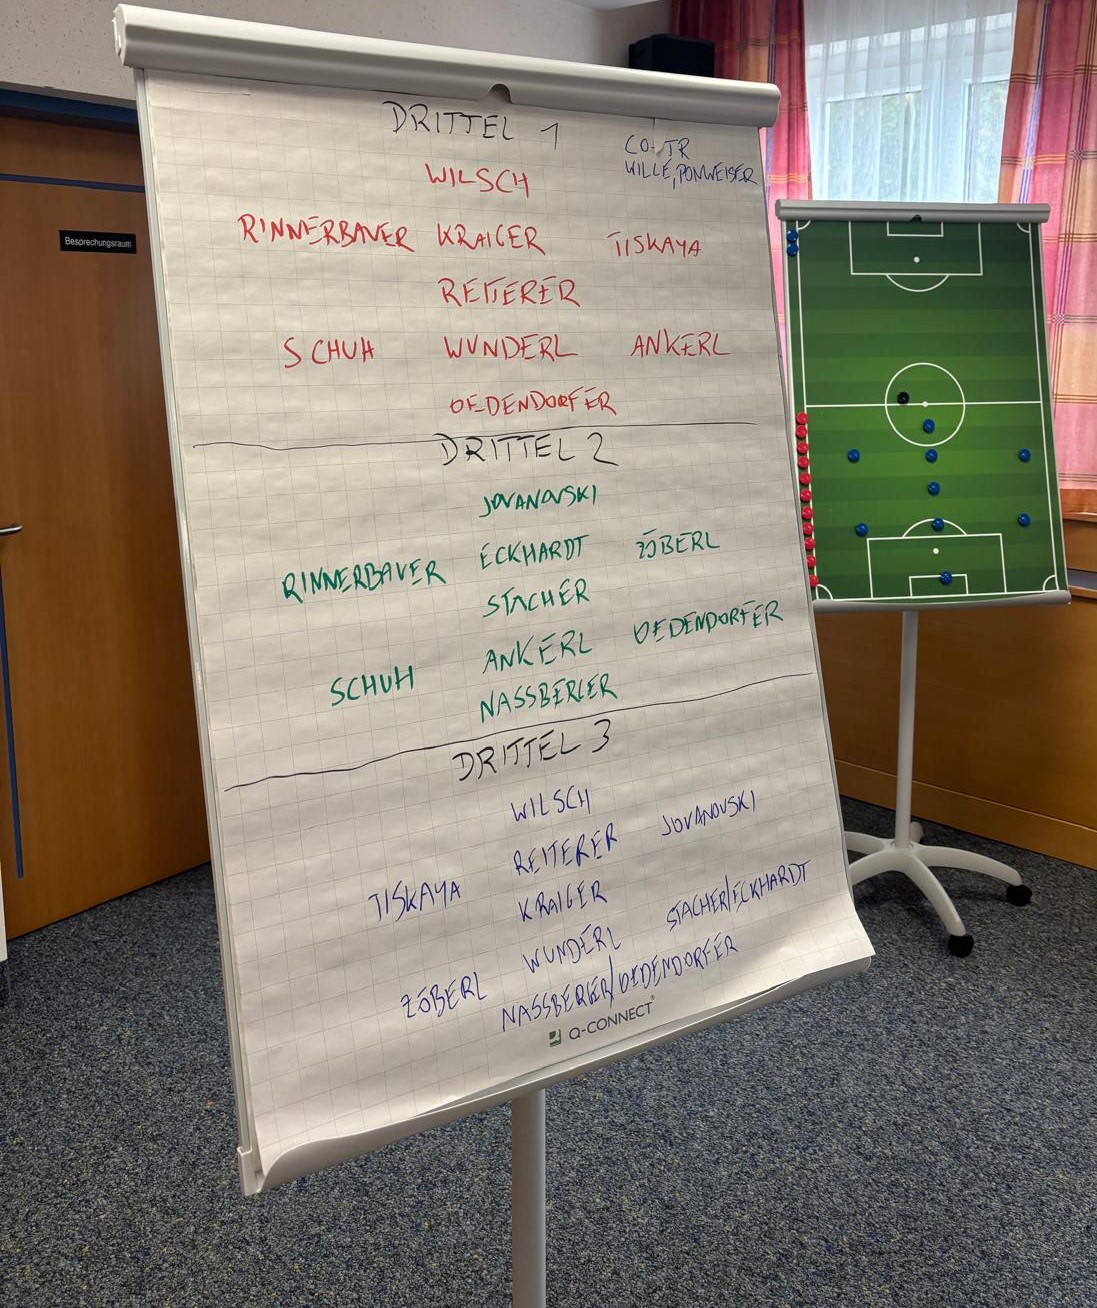 DRITTEL 1
CO-TR
WILLE, PONWEISER
WILSCH
RINNERBAUER KRAIGER TISKAYA
REITERER
SCHUH WUNDERL ANKERL
OEDENDORFER
DRITTEL 2
JOVANOVSKI
RINNERBAUER ECKHARDT ZÖBERL
STACHER
SCHUH ANKERL OEDENDORFER
NASSBERGER
DRITTEL 3
WILSCH
TISKAYA REITERER JOVANOVSKI
KRAIGER
ZÖBERL WUNDERL STACHER/ECKHARDT
NASSBERGER/OEDENDORFER
Q-CONNECT®
Besprechungsraum